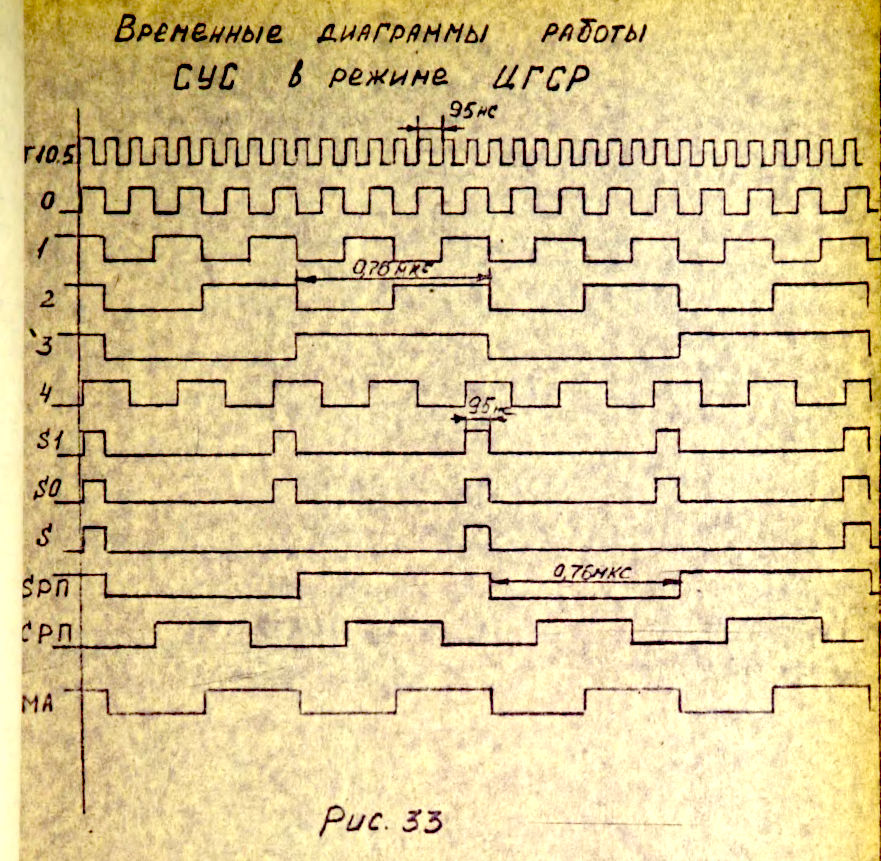 Временные диаграммы работы
СУС в режиме ЦГСР
95нс
Г10.5
0
1
0,76мкс
2
3
4
95нс
S1
S0
S
SРП
0,76мкс
СРП
МА
Рис. 33